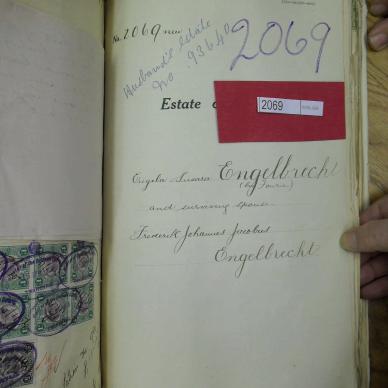 No. 2069 new
Husband's Estate
No. 93640
2069
Estate
2069
Engela Susara Engelbrecht
(b. Fourie)
and surviving spouse
Frederik Johannes Jacobus
Engelbrecht